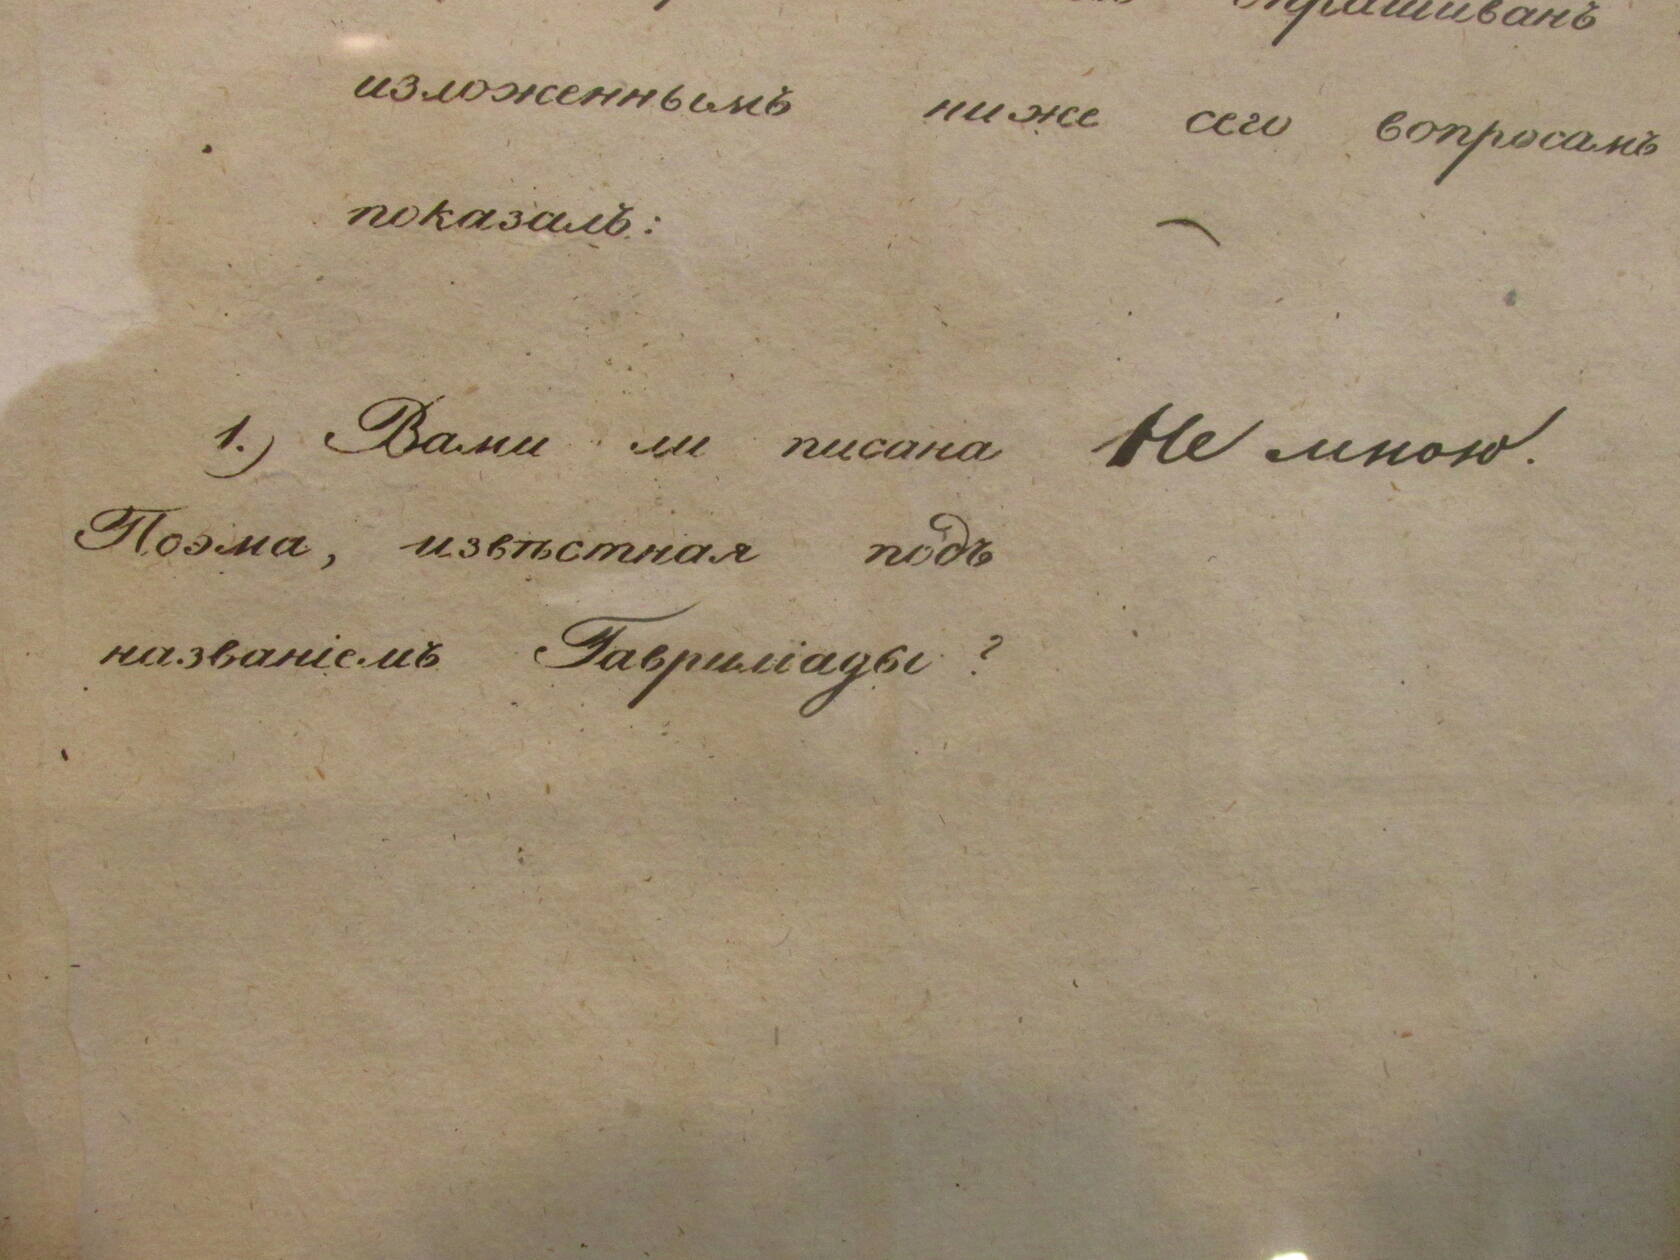 спрашиванъ
изложеннымъ ниже сего вопросамъ
показалъ:
1.) Вами ли писана Не мною.
Поэма, извѣстная подъ
названіемъ Гавриліады?